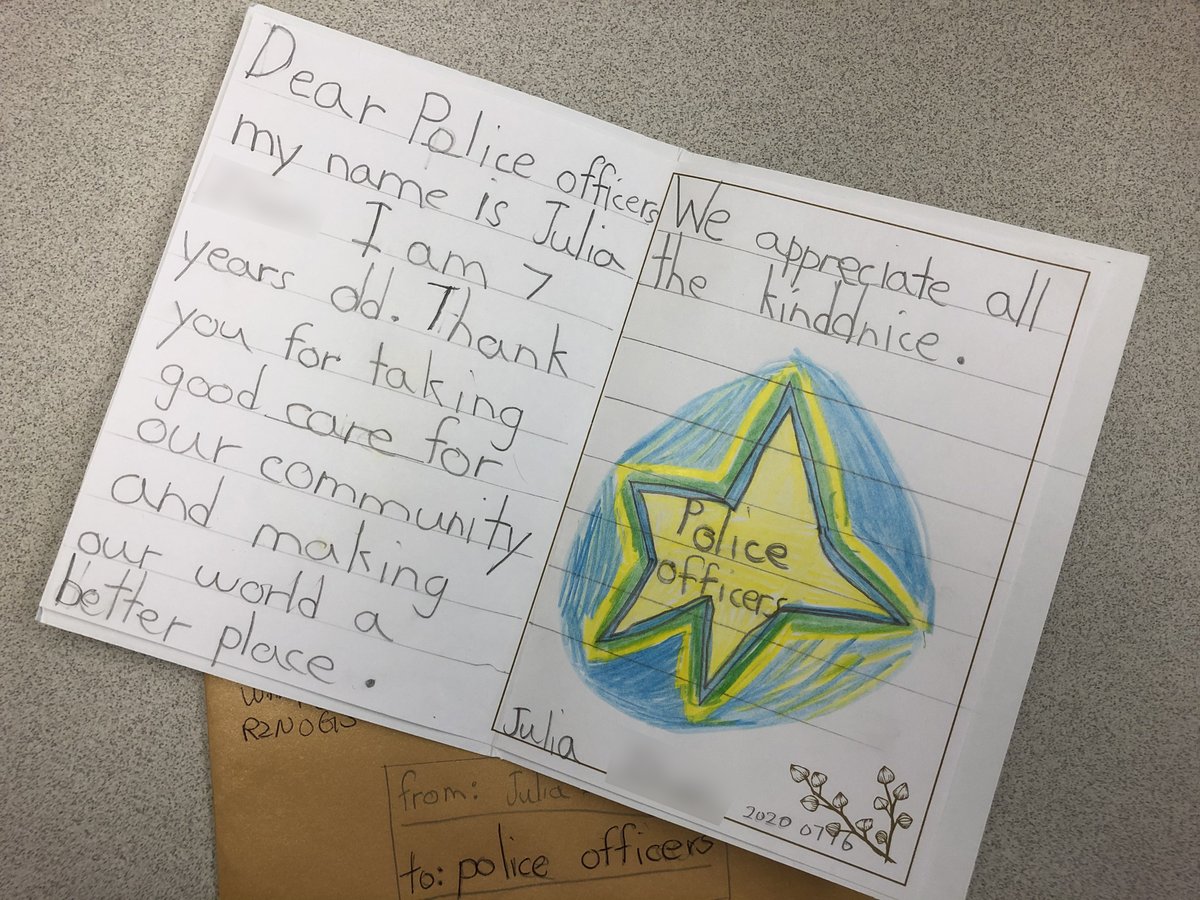 Dear Police officers
my name is Julia
I am 7
years old. Thank
you for taking
good care for
our community
and making
our world a
better place.
We appreciate all
the kinddnice.
Police
officers
Julia
2020 07
R2N 0G5
from: Julia
to: police officers